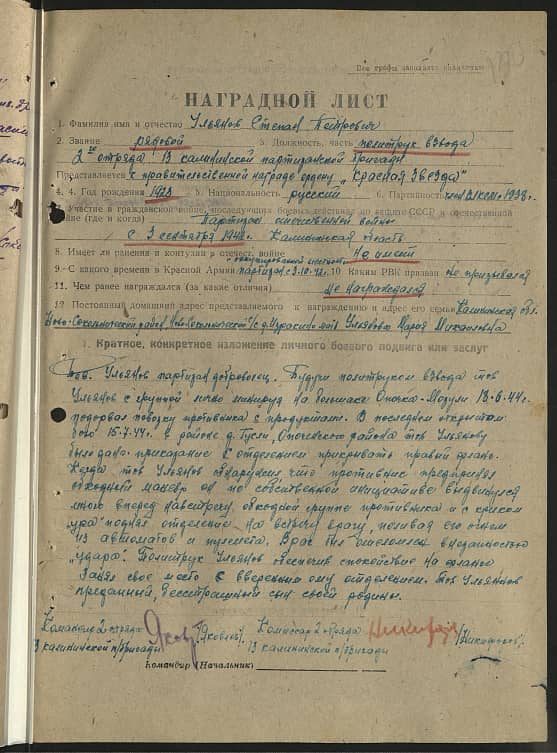 Все графы заполнять полностью
НАГРАДНОЙ ЛИСТ
1. Фамилия имя и отчество Ульянов Степан Петрович
2. Звание рядовой 3. Должность, часть политрук взвода
2го отряда 13 калининской партизанской бригады
Представляется к правительственной награде ордену „Красная Звезда"
4. 4. Год рождения 1923 5. Национальность русский 6. Партийность член ВЛКСМ с 1938г.
Участие в гражданской войне, последующих боевых действиях по защите СССР и отечественной
войне (где и когда) Партизан отечественной войны
с 3 сентября 1942г. Калининская область
8. Имеет ли ранения и контузии в отечест. войне не имеет
9. С какого времени в Красной Армии партизан с 3. 42г. 10 Каким РВК призван не призывался
11. Чем ранее награждался (за какие отличия) не награждался
12 Постоянный домашний адрес представляемого к награждению и адрес его семьи Калининская обл.
Ново-Сокольнический район, с/с д. мать Ульянова Мария Михайловна
1. Краткое, конкретное изложение личного боевого подвига или заслуг
Тов. Ульянов партизан доброволец. Будучи политруком взвода тов
Ульянов с группой лично минируя на большаке Опочка-Мозули 18.6.44г.
подорвал повозку противника с продуктами. В последнем открытом
бою 15.7.44г. в районе д. Гусли, Опочецкого района тов Ульянову
было дано приказание с отделением прикрывать правый фланг.
Когда тов Ульянов обнаружил что противник предпринял
обходной маневр он по собственной инициативе выдвинулся
вперед навстречу обходной группе противника и с криком
„ура" поднял отделение на встречу врагу, поливая его огнем
из автоматов и пулемета. Враг был ошеломлен внезапностью
удара. Политрук Ульянов обеспечив спокойствие на фланге
занял свое место с вверенным ему отделением. Тов Ульянов
преданный, бесстрашный сын своей родины.
Командир 2 отряда /Яковлев/ Комиссар 2 отряда /Никифоров/
13 калининской п/бригады 13 калининской п/бригады
Командир (Начальник)